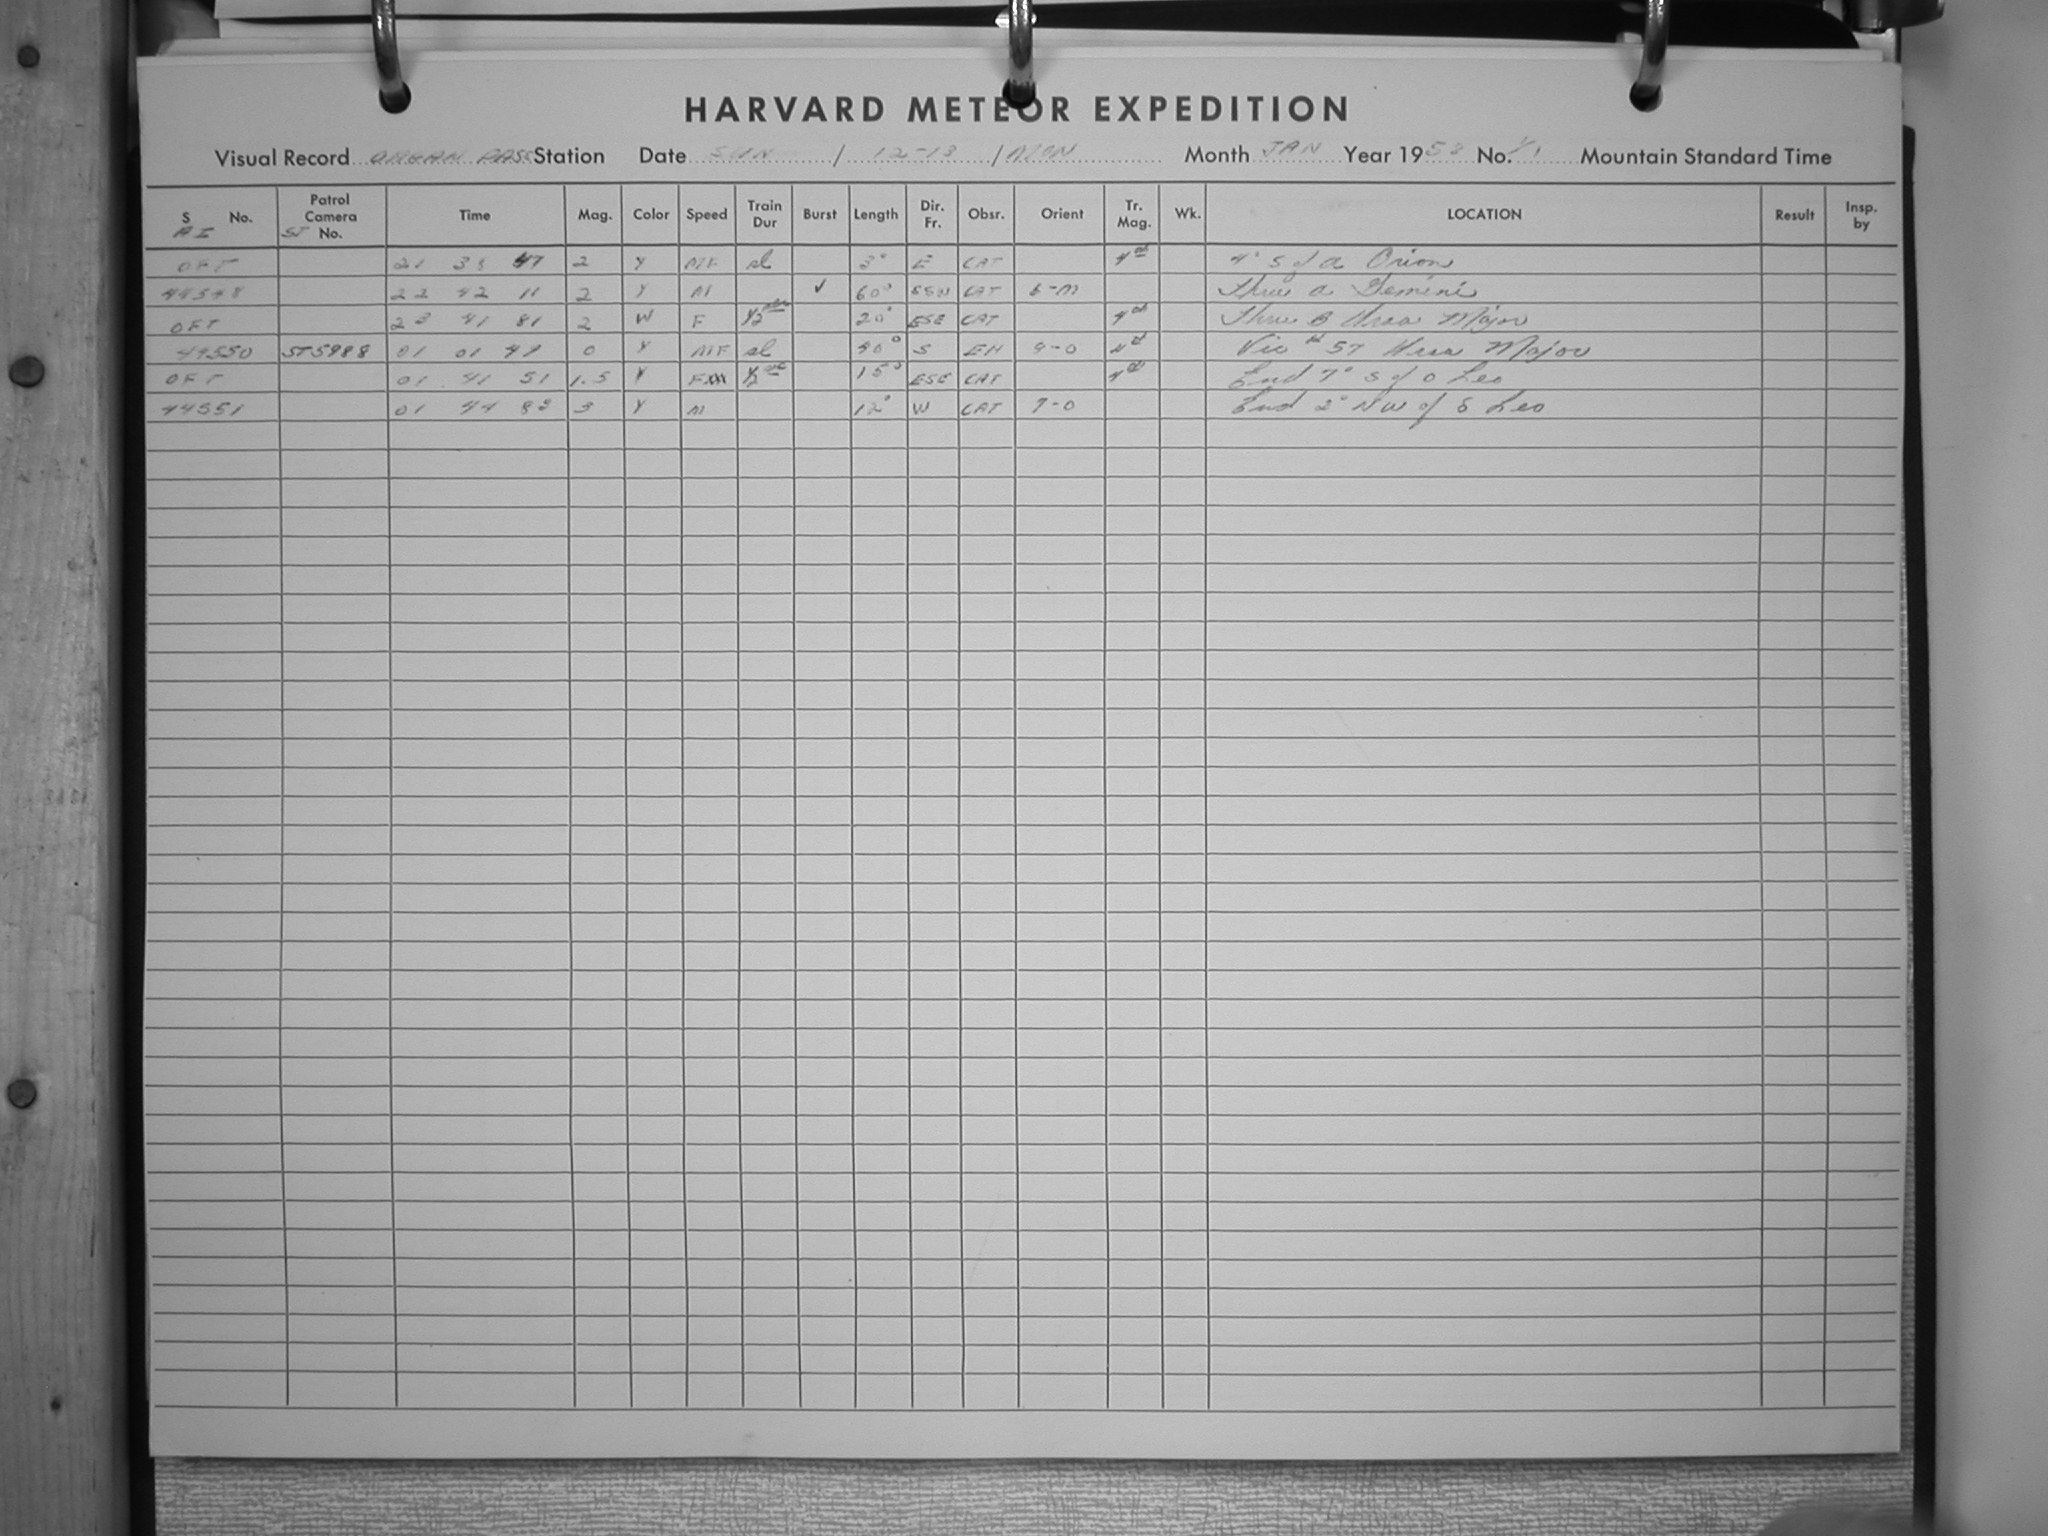 HARVARD METEOR EXPEDITION
Visual Record ORGAN PASS Station Date SUN / 12-13 / MON Month JAN Year 1958 No. 1/1 Mountain Standard Time
S AI No. Patrol Camera ST No. Time Mag. Color Speed Train Dur Burst Length Dir. Fr. Obsr. Orient Tr. Mag. Wk. LOCATION Result Insp. by
OFT 21 47 2 Y M/F sl 3° E CAT 4° S of α Orion
44548 22 42 11 2 Y M ✓ 60° SSW CAT 6-M Thru α Gemini
OFT 23 41 81 2 W F 1/2 20° ESE CAT Thru β Ursa Major
44550 ST5988 01 01 0 Y M/F sl 40° S EH 9-0 Vic # 57 Ursa Major
OFT 01 41 51 1.5 Y F 1/2 15° ESE CAT End 7° S of o Leo
44551 01 44 82 3 Y M 12° W CAT 7-0 End 2° NW of δ Leo